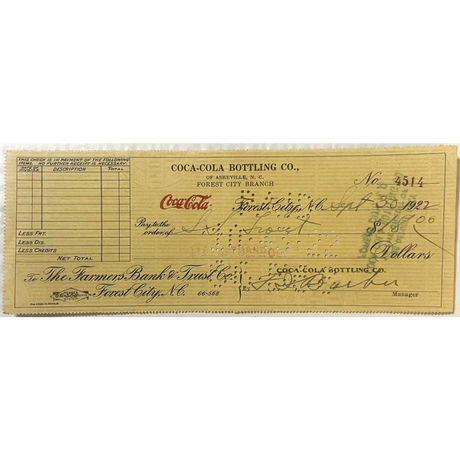 THIS CHECK IS IN PAYMENT OF THE FOLLOWING
ITEMS. NO FURTHER RECEIPT IS NECESSARY.
DESCRIPTION TOTAL
LESS FRT.
LESS DIS.
LESS CREDITS
NET TOTAL
COCA-COLA BOTTLING CO.,
OF ASHEVILLE, N. C.
FOREST CITY BRANCH
No. 4514
Coca-Cola
Forest City, N.C. Sept 30 1922
Pay to the
order of $
Dollars
To The Farmers Bank & Trust Co.
Forest City, N.C. 66-559
COCA-COLA BOTTLING CO.
Manager